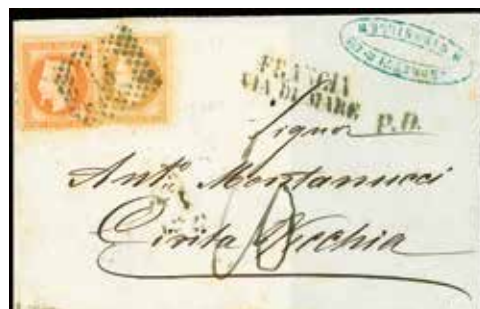 FRANCIA
VIA DI MARE
P.D.
Signor
Antº Montanucci
Civita Vecchia